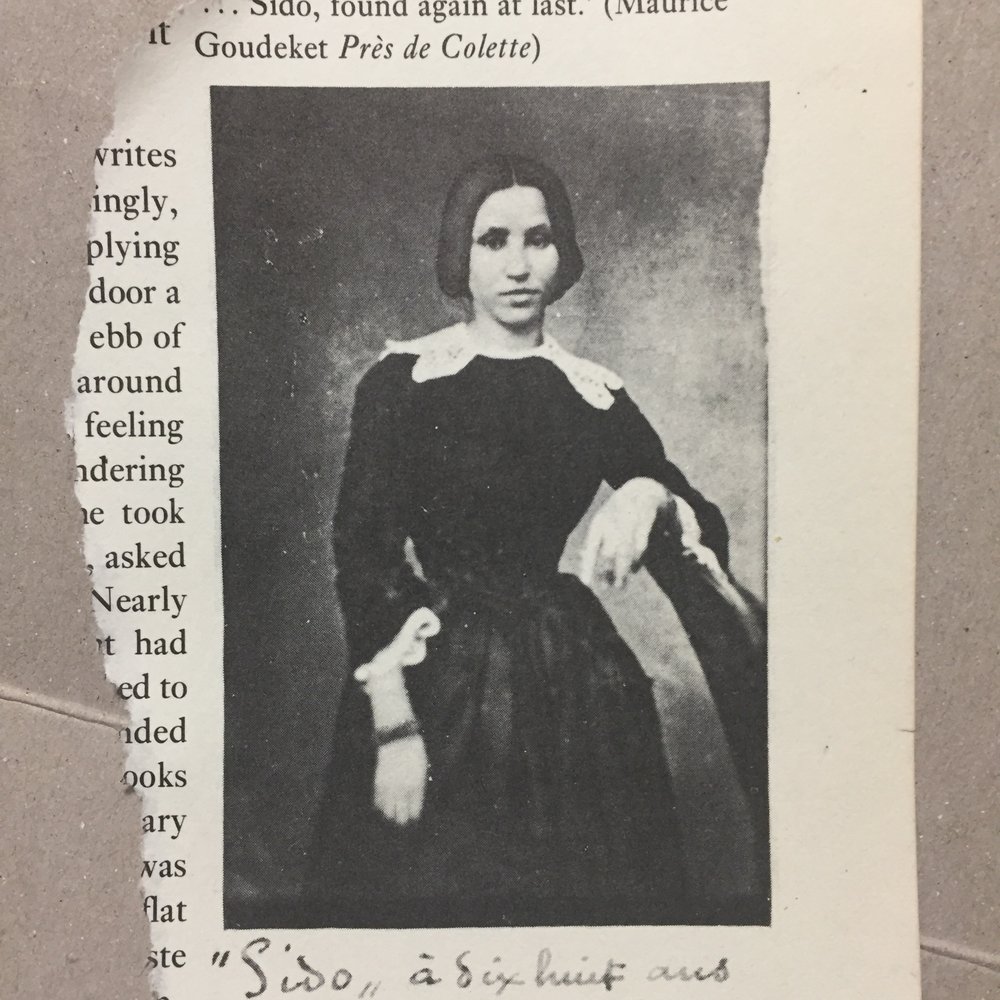 ... Sido, found again at last.' (Maurice
Goudeket Près de Colette)
writes
ingly,
plying
door a
ebb of
around
feeling
ndering
he took
, asked
Nearly
t had
ed to
nded
ooks
ary
was
flat
ste
"Sido„ à dix huit ans